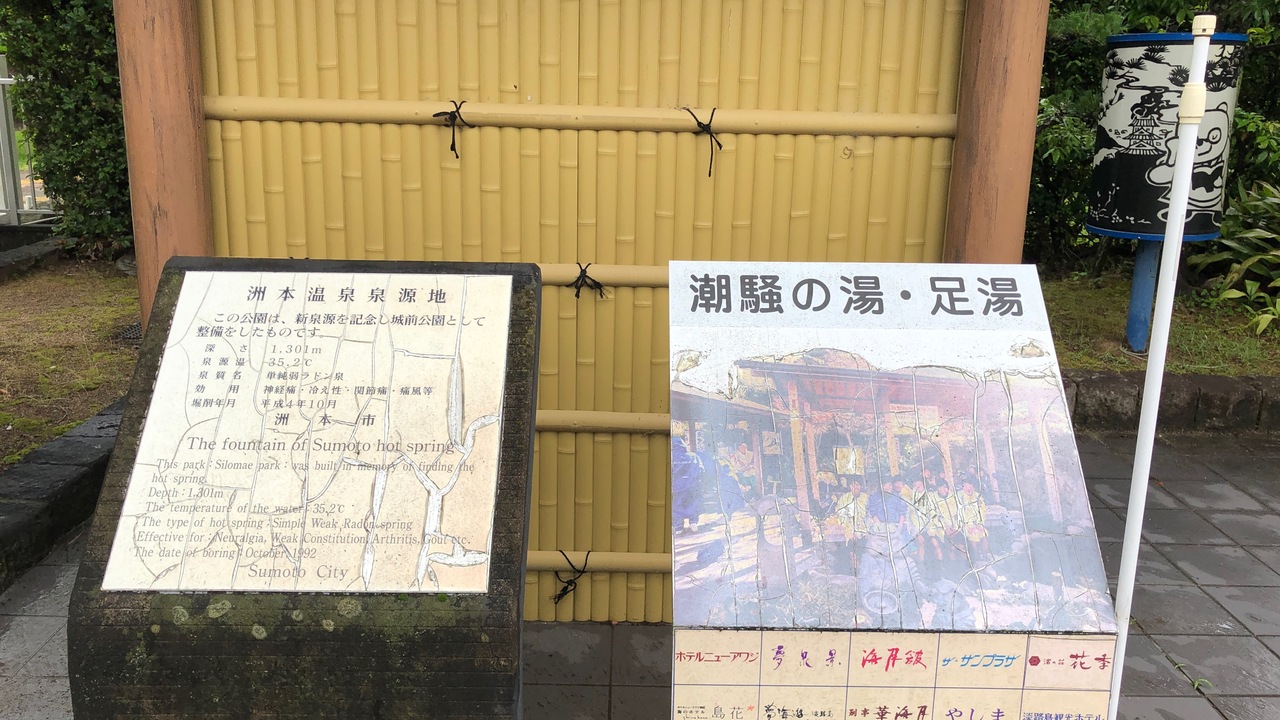 洲本温泉泉源地
この公園は、新泉源を記念し城前公園として
整備をしたものです。
深さ 1,301m
泉源温 35.2℃
泉質名 単純弱ラドン泉
効用 神経痛・冷え性・関節痛・痛風等
堀削年月 平成4年10月
洲本市
The fountain of Sumoto hot spring
This park : Silomae park : was built in memory of finding the
hot spring.
Depth : 1,301m
The temperature of the water : 35.2℃
The type of hot spring : Simple Weak Radon spring
Effective for : Neuralgia, Weak Constitution, Arthritis, Gout etc.
The date of boring : October 1992
Sumoto City
潮騒の湯・足湯
ホテルニューアワジ 夢泉景 海月館 ザ・サンプラザ 花季
島花 華海月 やしま 淡路島観光ホテル